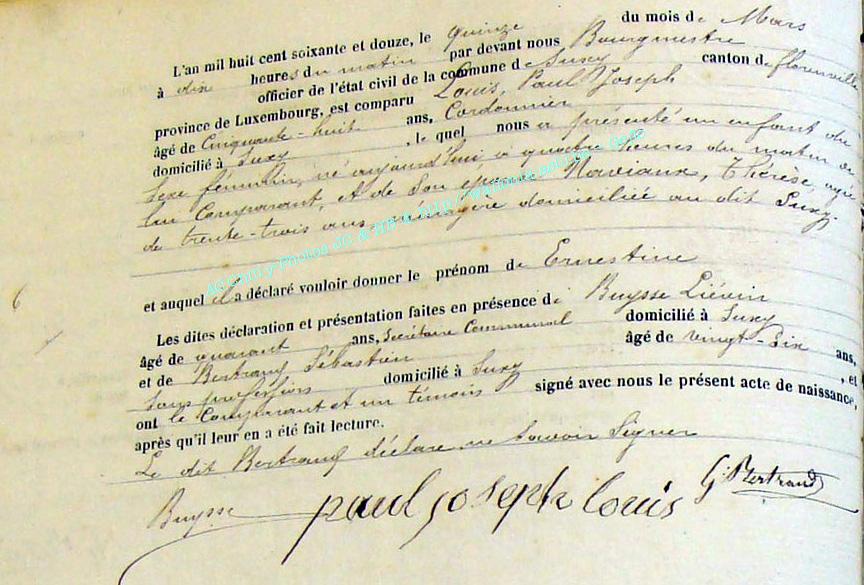 L'an mil huit cent soixante et douze, le quinze du mois de Mars
à dix heures du matin par devant nous Bourgmestre
officier de l'état civil de la commune de Suxy canton de florenville
province de Luxembourg, est comparu Louis, Paul Joseph
âgé de Cinquante-huit ans, Cordonnier
domicilié à Suxy, le quel nous a présenté un enfant du
sexe féminin, né aujourd'hui, à quatre heures du matin de
lui Comparant, et de Son epouse Naviaux, Thérèse, agée
de trente-trois ans, ménagère domiciliée au dit Suxy.
et auquel il a déclaré vouloir donner le prénom de Ernestine
Les dites déclaration et présentation faites en présence de Buysse Liévin
âgé de quarant ans, Secrétaire Communal domicilié à Suxy
et de Bertrand Sébastien âgé de vingt-six ans,
sans profession domicilié à Suxy, et
ont le Comparant et un témoin signé avec nous le présent acte de naissance,
après qu'il leur en a été fait lecture.
Le dit Bertrand déclare ne Savoir Signer
Buysse paul joseph louis G. Bertrand